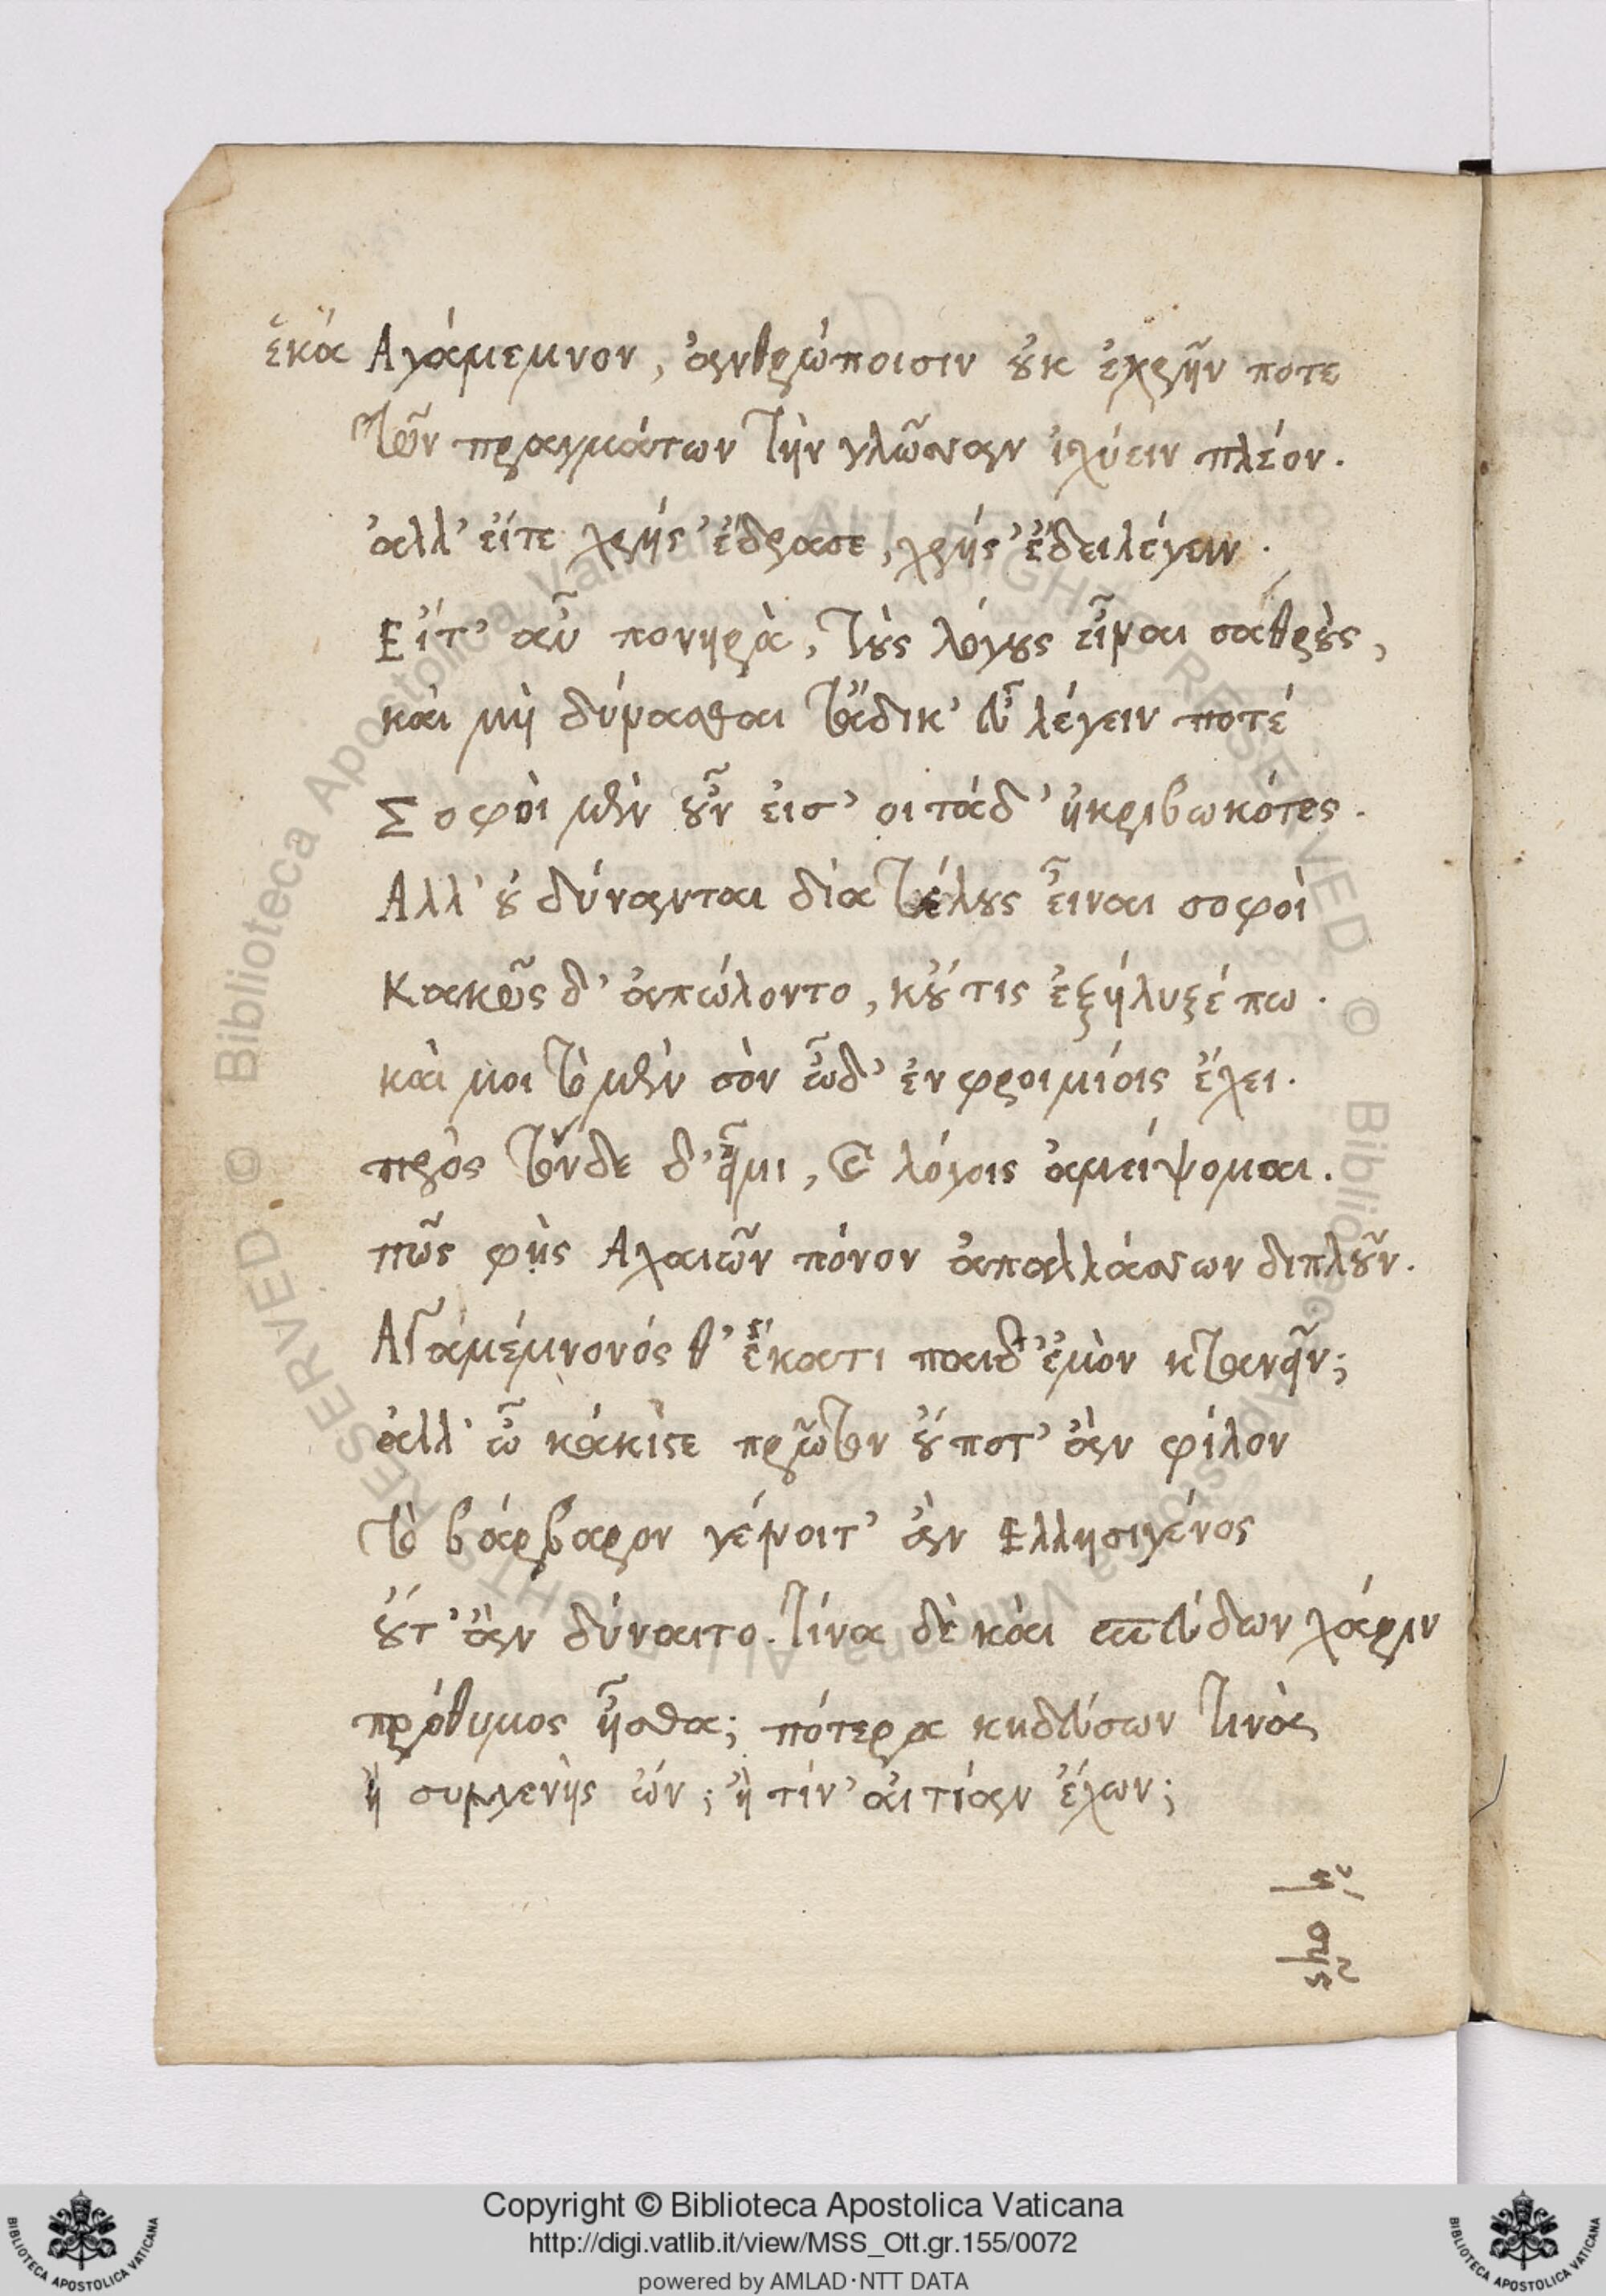 ἑκά Ἀγάμεμνον, ἀνθρώποισιν οὐκ ἐχρῆν ποτε
τῶν πραγμάτων τὴν γλῶσσαν ἰχύειν πλέον.
ἀλλ' εἴτε χρής' ἔδρασε, χρής' ἔδει λέγειν.
Εἴτ' αὖ πονηρὰ, τοὺς λόγους εἶναι σαθροὺς,
καὶ μὴ δύνασθαι τἄδικ' εὖ λέγειν ποτέ
Σοφοὶ μὲν οὖν εἰσ' οι τάδ' ἠκριβωκότες.
Αλλ' οὐ δύνανται δία τέλους εἶναι σοφοὶ
Κακῶς δ' ἀπώλοντο, κοὔτις ἐξήλυξέ πω.
καὶ μοι τὸ μὲν σὸν ὧδ' ἐν φροιμίοις ἔχει.
πρὸς τόνδε δ' εἶμι, καὶ λόγοις ἀμείψομαι.
πῶς φῂς Αχαιῶν πόνον ἀπαλλάσσων διπλοῦν.
Αγαμέμνονός θ' ἕκατι παιδ' ἐμὸν κτανεῖν;
ἀλλ' ὦ κάκιστε πρῶτον οὔποτ' ἂν φίλον
τὸ βάρβαρον γένοιτ' ἂν Ελλησι γένος
οὔτ' ἂν δύναιτο. τίνα δὲ καὶ σπεύδων χάριν
πρόθυμος ἦσθα; πότερα κηδεύσων τινὰ
ἢ συγγενὴς ὤν; ἢ τίν' αἰτίαν ἔχων;
Copyright © Biblioteca Apostolica Vaticana
http://digi.vatlib.it/view/MSS_Ott.gr.155/0072
powered by AMLAD·NTT DATA